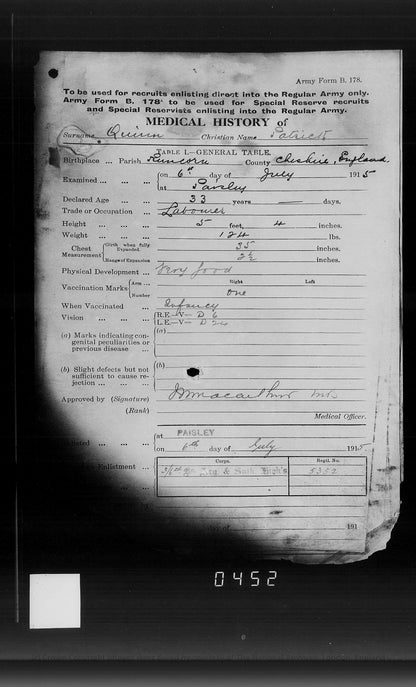 Army Form B. 178.
To be used for recruits enlisting direct into the Regular Army only.
Army Form B. 178A to be used for Special Reserve recruits
and Special Reservists enlisting into the Regular Army.
MEDICAL HISTORY of
Surname Quinn Christian Name Patrick
TABLE I.—GENERAL TABLE.
Birthplace ... Parish Runcorn County Cheshire, England
Examined ... { on 6th day of July 1915
at Paisley
Declared Age ... 33 years — days.
Trade or Occupation ... Labourer
Height ... 5 feet, 4 inches.
Weight ... 124 lbs.
Chest Measurement { Girth when fully Expanded. 35 inches.
Range of Expansion 2½ inches.
Physical Development ... Very Good
Vaccination Marks { Arm ... Right Left
Number one
When Vaccinated ... Infancy
Vision ... { R.E.—V— D 6
L.E.—V— D
(a) Marks indicating congenital peculiarities or previous disease ... { (a)
(b) Slight defects but not sufficient to cause rejection ... { (b)
Approved by (Signature)
(Rank) Medical Officer.
Enlisted ... { at PAISLEY
on 6th day of July 1915
Corps. Regtl. No.
Enlistment ... Arg. & Suth. High's 5352
of 191
0452